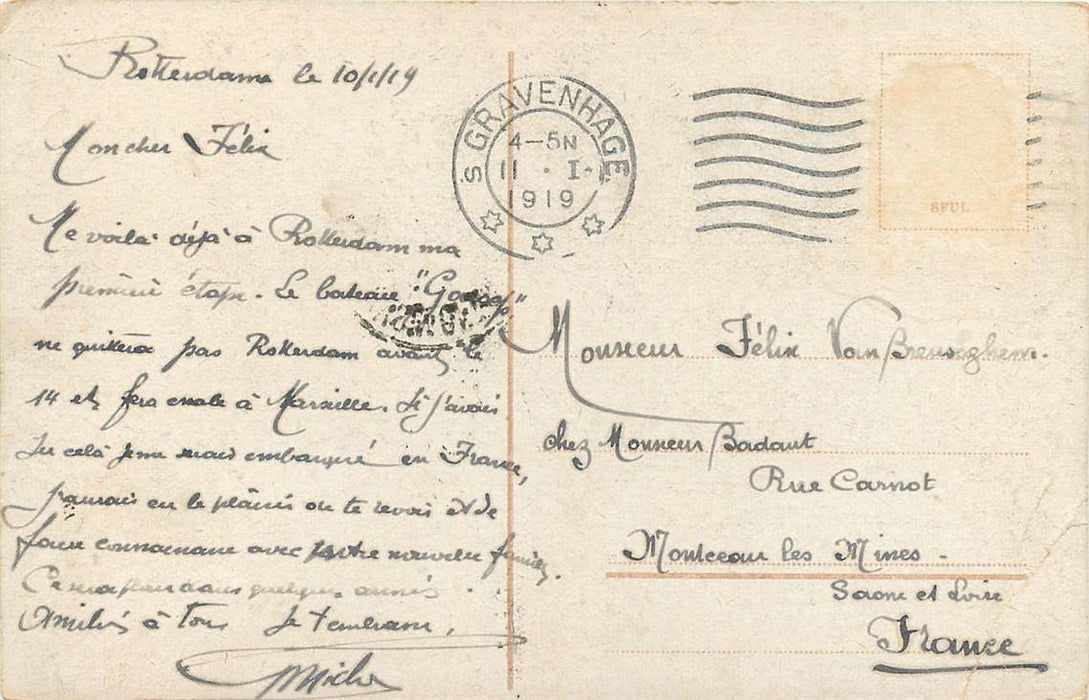 Rotterdam le 10/1/19
Mon cher Félix
Me voilà déjà à Rotterdam ma
première étape. Le bateau
ne quittera pas Rotterdam avant le
14 et fera escale à Marseille. Si j'avais
su celà je me serais embarqué en France,
j'aurais eu le plaisir de te revoir et de
faire connaissance avec votre nouvelle famille.
Ce sera pour dans quelques années.
Amitiés à tous Je t'embrasse,
S GRAVENHAGE
4-5N
11 · I ·
1919
SEUL
Monsieur Félix Van Breuseghem.
chez Monsieur Badaut
Rue Carnot
Montceau les Mines -
Saone et Loire
France